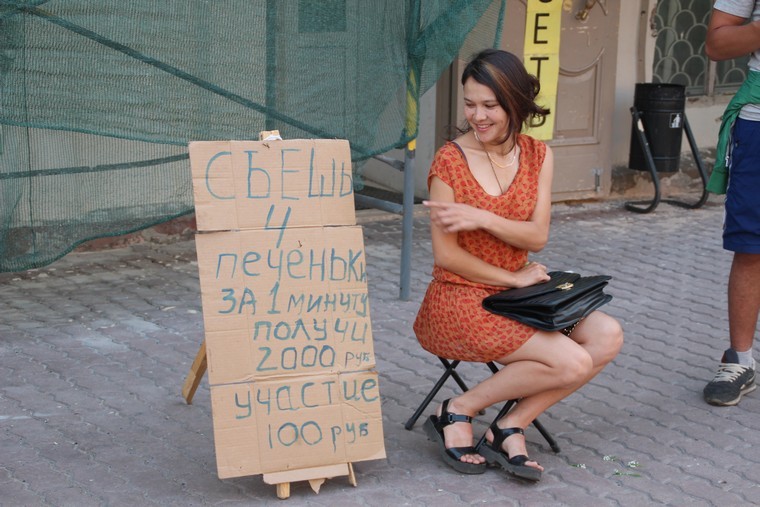 СЪЕШЬ
4
печеньки
ЗА 1 минуту
получи
2000 руб
участие
100 руб